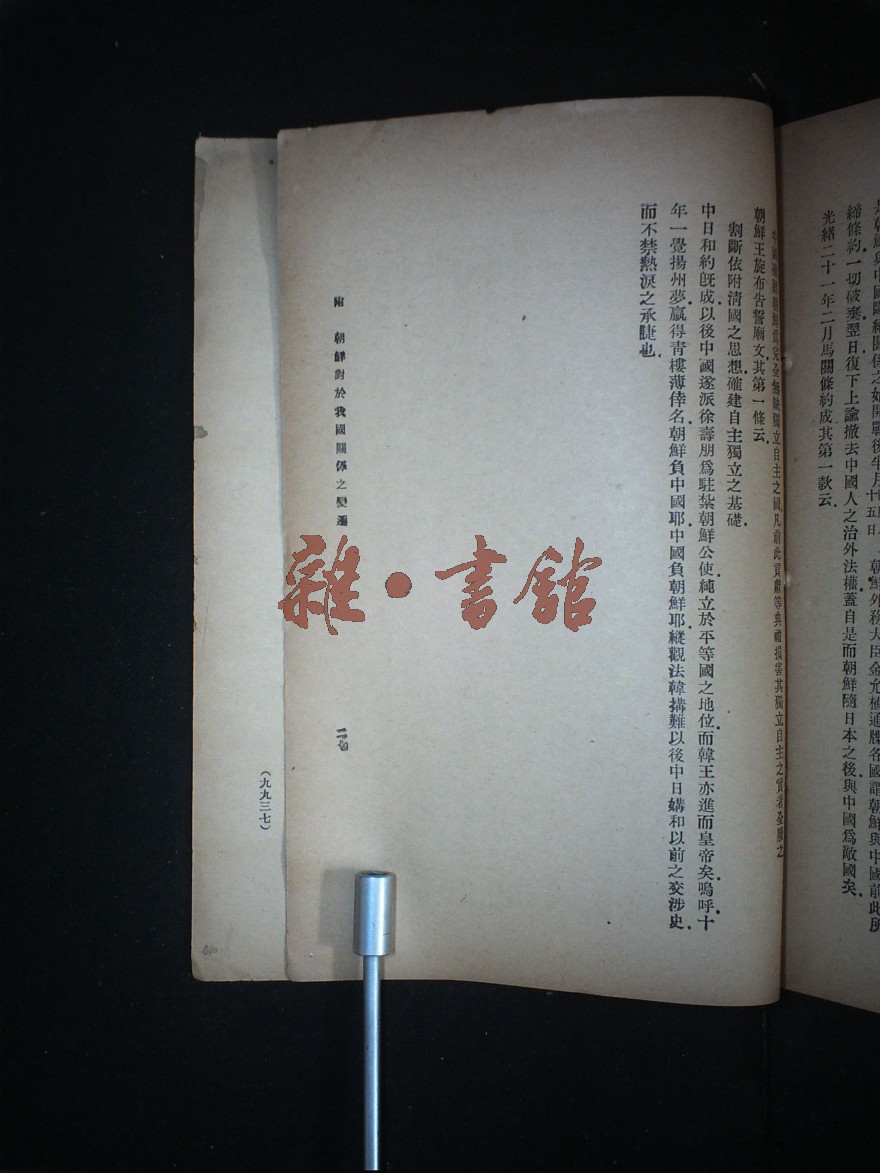 是朝鮮與中國斷絕關係之始開戰後半月十五日朝鮮外務大臣金允植通牒各國謂朝鮮與中國前此所
締條約一切破棄翌日復下上諭撤去中國人之治外法權蓋自是而朝鮮隨日本之後與中國爲敵國矣
光緒二十一年二月馬關條約成其第一款云
中國確認朝鮮國爲完全無缺獨立自主之國凡前此貢獻等典禮損害其獨立自主之實者全廢之
朝鮮王旋布告誓廟文其第一條云
割斷依附清國之思想確建自主獨立之基礎
中日和約旣成以後中國遂派徐壽朋爲駐紮朝鮮公使純立於平等國之地位而韓王亦進而皇帝矣嗚呼十
年一覺揚州夢贏得靑樓薄倖名朝鮮負中國耶中國負朝鮮耶縱觀法韓搆難以後中日媾和以前之交涉史
而不禁熱淚之承睫也
附 朝鮮對於我國關係之變遷
雜·書館
(九九三七)